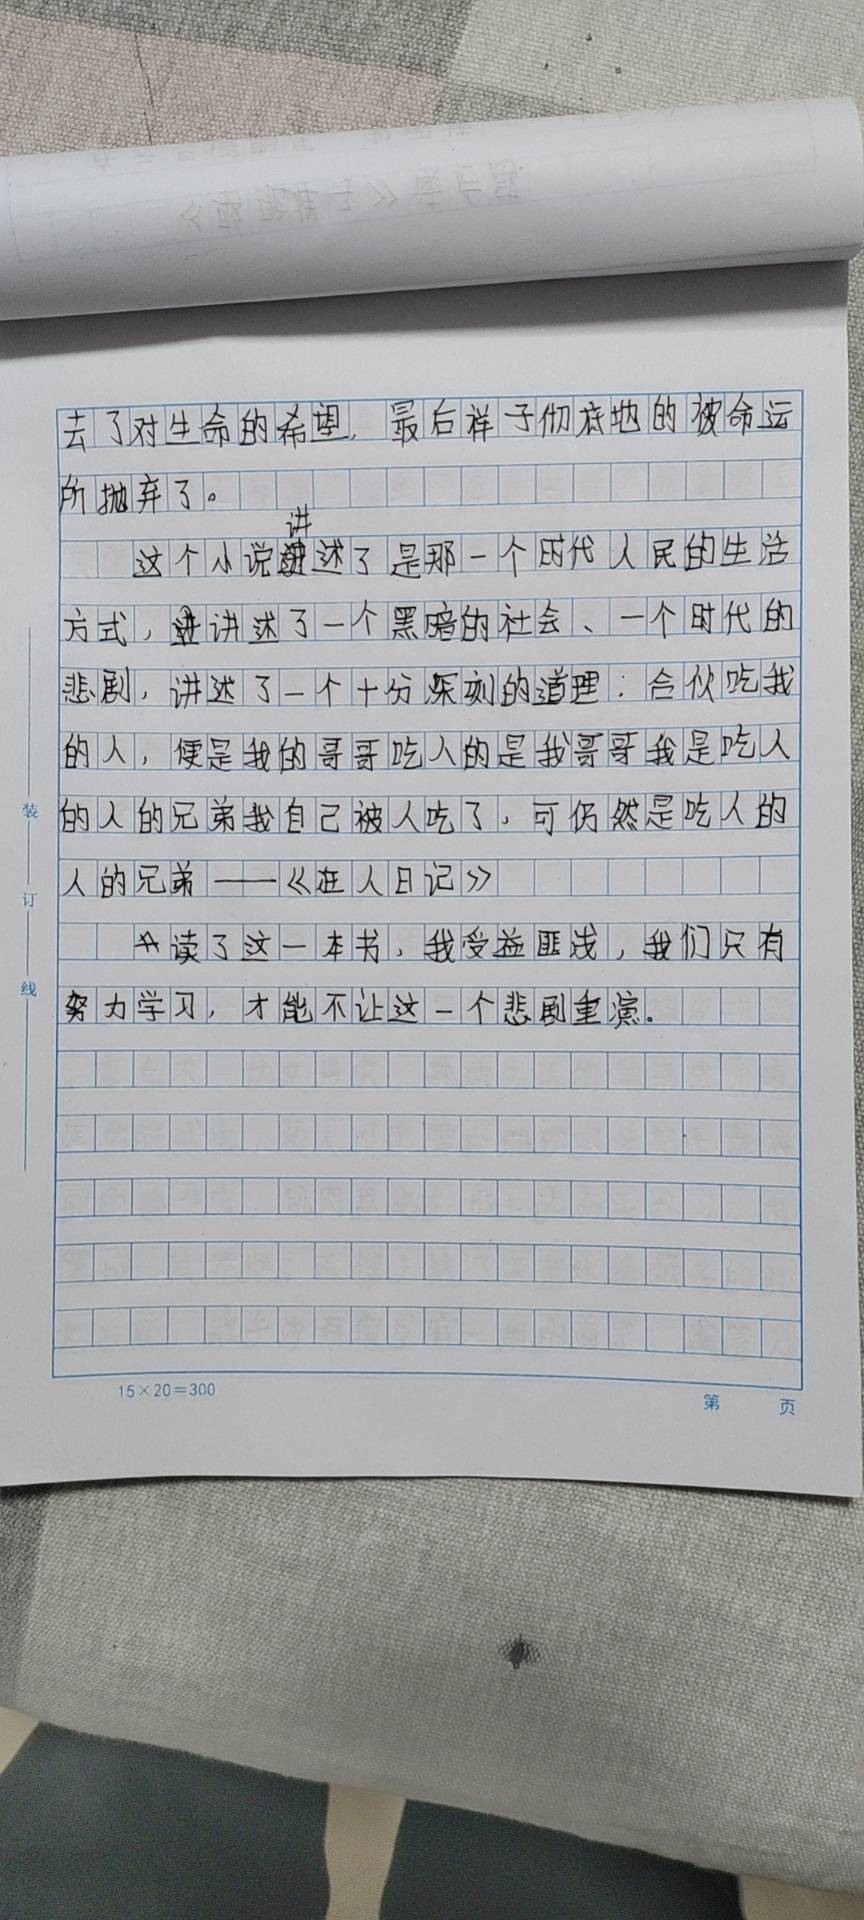 去了对生命的希望，最后样子彻底地的被命运
所抛弃了。
讲
这个小说述了是那一个时代人民的生活
方式，讲述了一个黑暗的社会、一个时代的
悲剧，讲述了一个十分深刻的道理：合伙吃我
的人，便是我的哥哥吃人的是我哥哥我是吃人
的人的兄弟我自己被人吃了，可仍然是吃人的
人的兄弟——《狂人日记》
读了这一本书，我受益匪浅，我们只有
努力学习，才能不让这一个悲剧重演.
装
订
线
15×20=300
第 页